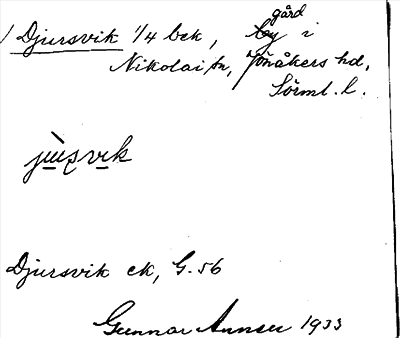 Djursvik 1/4 bek, gård i
Nikolai sn, Jönåkers hd,
Sörml. l.
Djursvik ek, G. 56
Gunnar Annser 1933